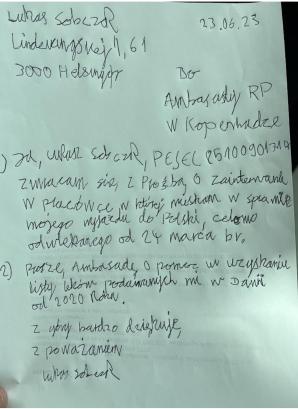 Lukas Sobczak
23.06.23
61
3000 Helsingør
Do
Ambasady RP
W Kopenhadze
1) Ja, Lukasz Sobczak, PESEL
zwracam się z Prośbą o zaintereso
w placówce, w której mieszkam w sprawie
mojego wyjazdu do Polski, celowo
odwlekanego od 24 marca br.
2) Proszę Ambasadę o pomoc w uzyskaniu
listy leków podawanych mi w Danii
od 2020 Roku.
z góry bardzo dziękuję,
z poważaniem
Lukas Sobczak